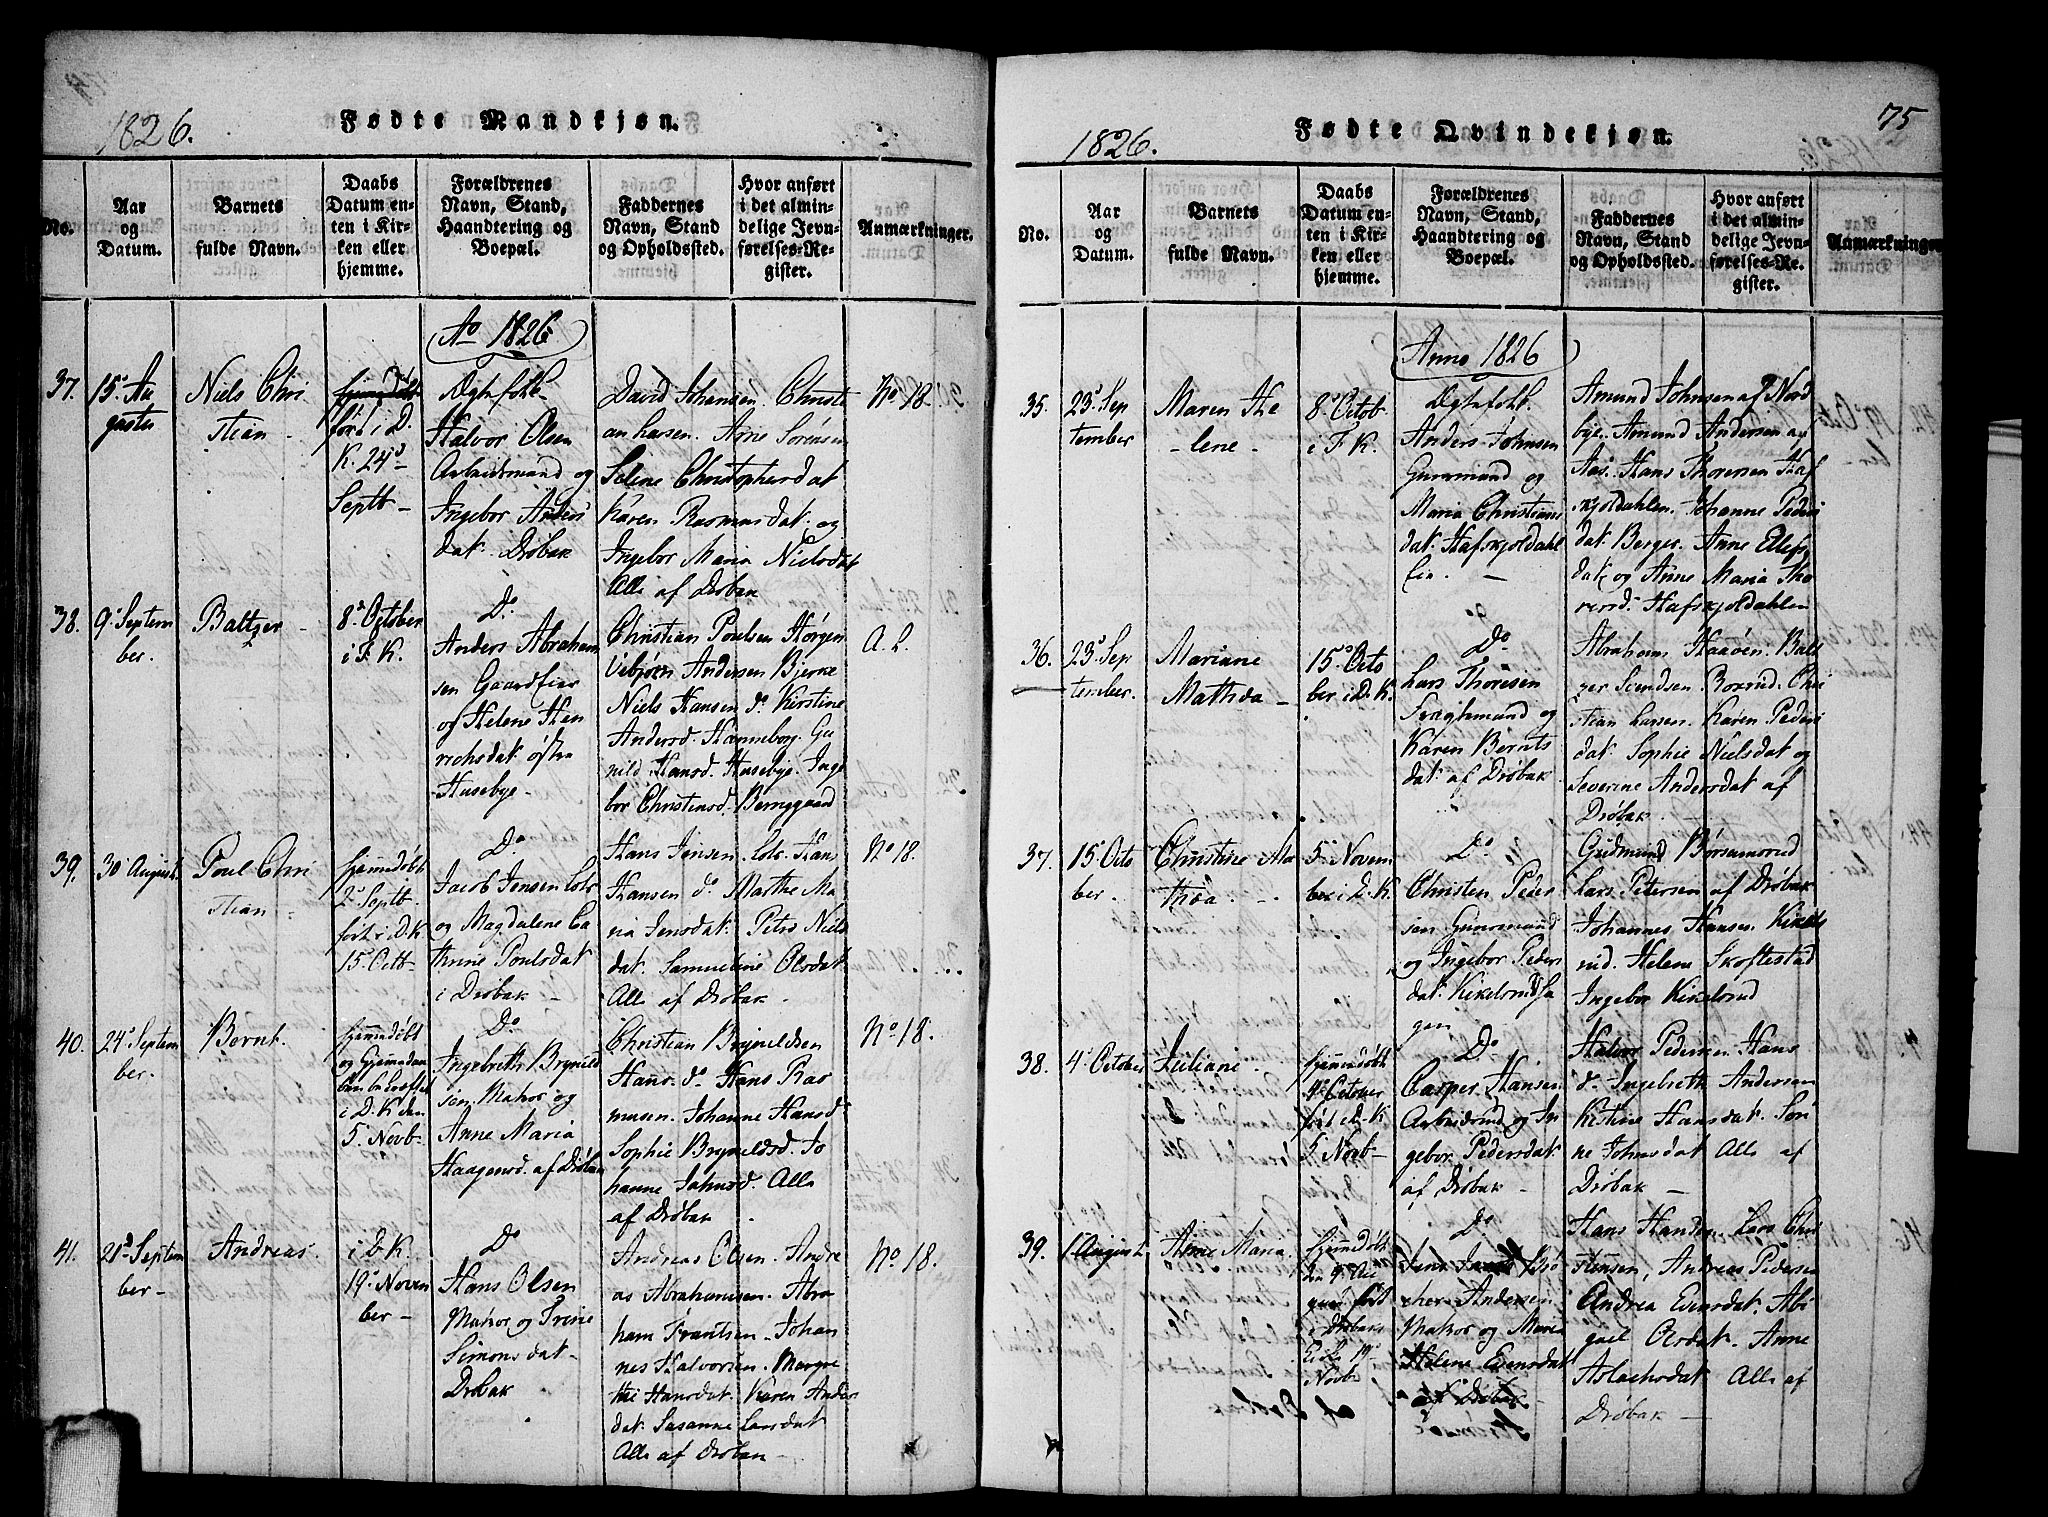 1826.
Fødte Mandkjøn.
No.
Aar og Datum.
Barnets fulde Navn.
Daabs Datum enten i Kirken eller hjemme.
Forældrenes Navn, Stand, Haandtering og Boepæl.
Faddernes Navn, Stand og Opholdssted.
Hvor anført i det almindelige Jevnførelses-Register.
Anmærkninger.
Ao 1826
37.
15de Au
gusti
Niels Chri
stian -
ført i D.
K. 24d
Septb -
Ægtefolk
Halvor Olsen
Arbeidsmand og
Ingebor Anders
dat. Drøbak
David Johansen. Christi
an Larsen. Arne Sørensen
Selene Christophersdat
Karen Rasmusdat. og
Ingebor Maria Nielsdat
Alle af Drøbak
No 18.
38.
9d Septem
ber.
Baltzer -
8d October
i F. K.
Do
Anders Abraham
sen Gaardeier
og Helene Hen
richsdat østre
Husebye.
Christian Poulsen Horgen
Vebjørn Andersen Bjerke
Niels Hansen do Kirstine
Andersd. Hanneborg. Gu
nild Hansd. Husebye. Inge
bor Christensd. Berggaard
A. L.
39.
30 August.
Poul Chri
stian -
hjemmedøbt
2d Septb.
ført i D.K.
15 Octb -
Do
Jacob Jensen Lots
og Magdalene Ca
thrine Poulsdat
i Drøbak -
Hans Jensen Lots. Hans
Hansen do Marthe Ma
ria Jensdat. Petro Niels
dat. Samueline Olsdat.
Alle af Drøbak -
No 18.
40.
24d Septem
ber. -
Bernt.
hjemmedøbt
og Hjemmedaa
ben bekræftet
i D.K. den
5. Novb -
Do
Ingebreth Brynild
sen. Matros og
Anne Maria
Haagensd. af Drøbak
Christian Brynildsen
Hans do Hans Ras
musen. Johanne Hansd.
Sophie Brynildsd. Jo
hanne Johnsd. Alle
af Drøbak
No 18.
41.
21d Septem
ber -
Andreas.
i D.K.
19d Novem
ber -
Do
Hans Olsen
Matros og Trine
Simonsdat -
Drøbak
Andreas Olsen. Andre
as Abrahamsen. Abra
ham Frantsen. Johan
nes Halvorsen. Margre
the Hansdat. Karen Anders
dat. Susanne Larsdat
Alle af Drøbak -
No 18.
1826.
Fødte Qvindekjøn.
75
No.
Aar og Datum.
Barnets fulde Navn.
Daabs Datum enten i Kirken eller hjemme.
Forældrenes Navn, Stand, Haandtering og Boepæl.
Faddernes Navn, Stand og Opholdssted.
Hvor anført i det almindelige Jevnførelses-Register.
Anmærkninger
Anno 1826
35.
23d Sep
tember
Maren He
lene -
8d Octob
i F. K.
Ægtefolk.
Anders Johnsen
Gaarmand og
Maria Christians
dat. Hafskjoldahl
Eie. -
Amund Johnsen af Nord
bye. Amund Andersen af
Aas. Hans Thoresen Haf
skjoldahlen. Johanne Peders
dat Berger. Anne Elefs
dat og Anne Maria Tho
resd. Hafskjoldahlen
36.
23d Sep
tember.
Mariane
Mathea -
15d Octo
ber i D.K.
Do
Lars Thoresen
Fragtmand og
Karen Bernts
dat. af Drøbak.
Abraham Haaøen. Balt
zer Svendsen Roxrud. Chri
stian Larsen. Karen Peders
dat. Sophie Nielsdat og
Severine Andersdat af
Drøbak.
37.
15 Octo
ber.
Christine Ma
thea. -
5d Novem
ber i D.K.
Do
Christen Peder
sen Gaarmand
og Ingebor Peders
dat. Kikelsrud Ha
gen
Gudmund Børsumrud
Lars Petersen af Drøbak
Johannes Hansen Kikels
rud. Helene Skoftestad
Ingebor Kikelsrud
38.
4d October
Juliane.
hjemmedøbt
9d October
ført i D.K.
5 Novb -
Do
Casper Hansen
Arbeidsmd og In
gebor Pedersdat
af Drøbak -
Halvor Pedersen. Hans
do. Ingebreth Andersen
Kistine Hansdat. Sør
ine Johnsdat Alle af
Drøbak -
39.
1 August.
Anne Maria.
hjemmedøbt
den 9d Au
gust ført
i Drøbaks
Kirke 19d
Novbr
Do
cher Andersen
Matros og Maria
Helene Evensdat
af Drøbak -
Hans Hansen. Lars Chri
stensen, Andreas Pedersen
Andrea Evensdat. Abi
gael Olsdat. Anne
Aslachsdat Alle af
Drøbak -